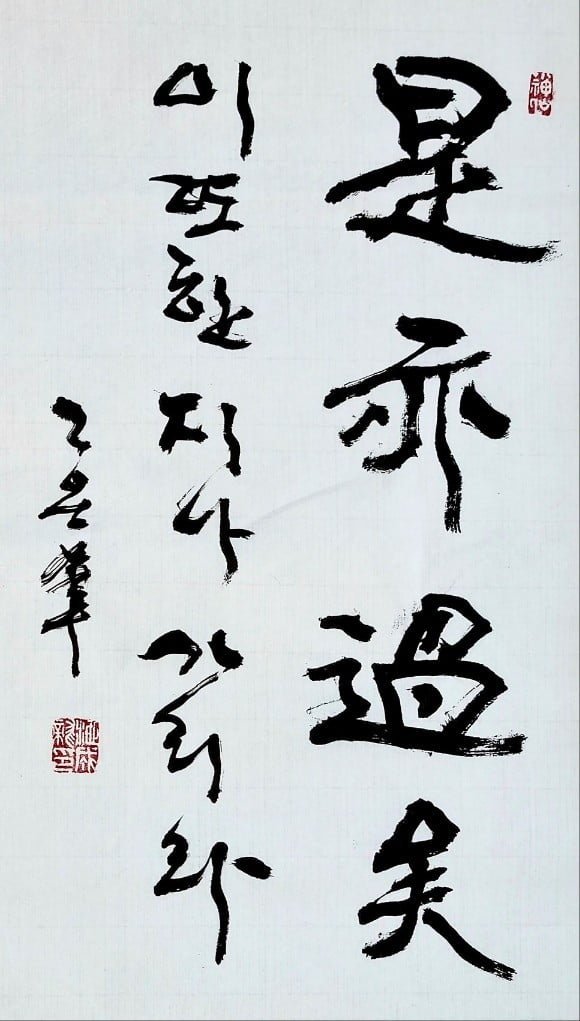 是亦過矣
이 또한 지나가리라